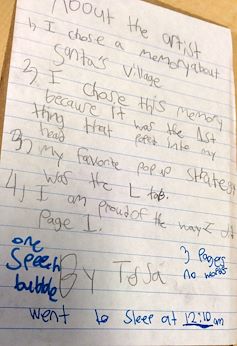 About the artist
1) I chose a memory about
Santa's Village
2) I chose this memory
because it was the 1st
thing that popt into my
head
3) my favorite pop up strategy
was the L tab.
4) I am proud of the way I
page 1.
one
Speech
bubble
By Tessa
3 Pages
no words
went to sleep at 12:10 am